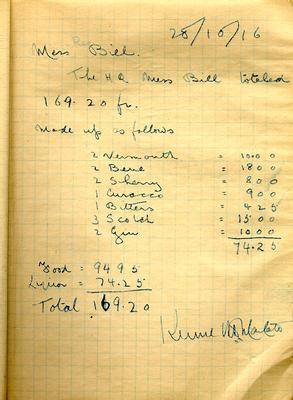 28/10/16
Mess Bill.
The H.Q. Mess Bill totaled
169.20 fr.
Made up as follows
2 Vermouth = 10.00
2 Bene = 18.00
2 Sherry = 8.00
1 Curacco = 9.00
1 Bitters = 4.25
3 Scotch = 15.00
2 Gin = 10.00
74.25
Food = 94.95
Liquor = 74.25
Total 169.20